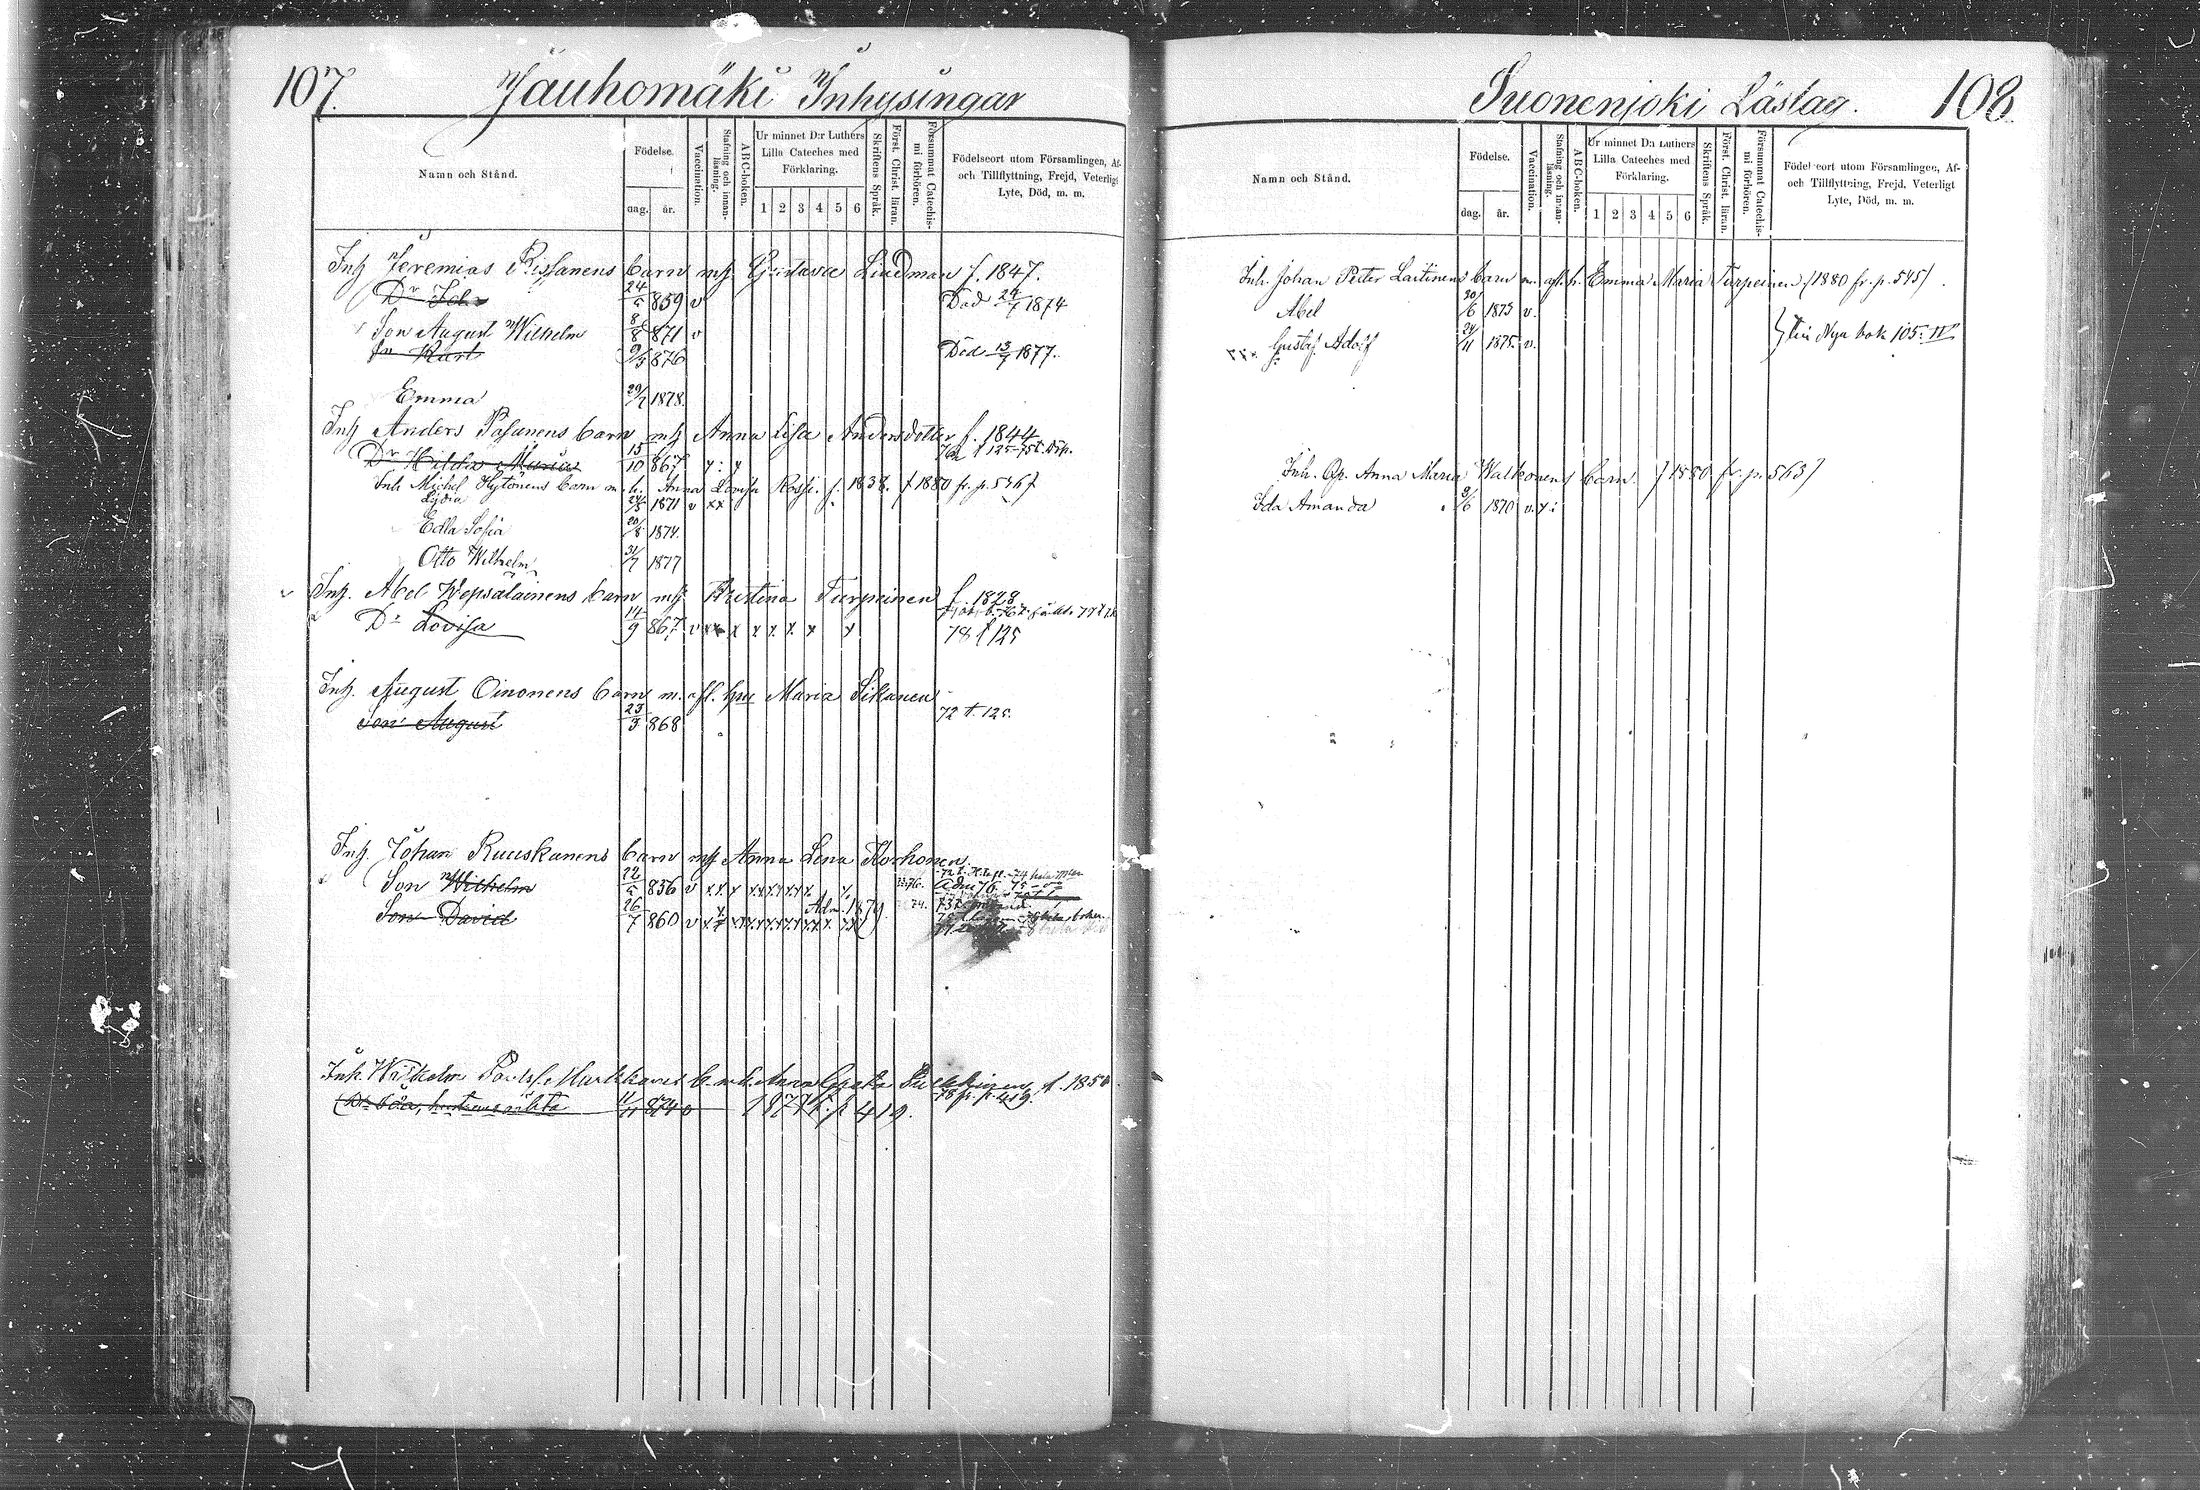 107.
Jauhomäki Inhysingar
Namn och Stånd.
Födelse.
dag.
år.
Vaccination.
Stafning och innan-
läsning.
ABC-boken.
Ur minnet D:r Luthers
Lilla Cateches med
Förklaring.
1 2 3 4 5 6
Skriftens Språk.
Först. Christ. läran.
Försummat Catechis-
mi förhören.
Födelseort utom Församlingen, Af-
och Tillflyttning, Frejd, Veterligt
Lyte, Död, m. m.
Inh Jeremias Rissanens barn mh. Gustava Lindman f. 1847.
Dr 24/5 859 v Död 24/7 1874
Son August Wilhelm 8/8 871 v
9/3 876 Död 13/7 1877.
Emma 29/7 1878.
Inh Anders Pasanens barn mh Anna Lisa Andersdotter f. 1844
Dr Hilda Maria 15/10 867
Inh Michel Hytönens barn m. h. Anna Lovisa Rossi. f. 1838. f 1880 fr. p. 546
Lydia 24/3 1871 v xx
Edla Sofia 20/8 1874.
Otto Wilhelm 31/7 1877
Inh. Abel Wepsäläinens barn mh. Kristina Turpeinen f. 1828
Dr Lovisa 14/9 867 v xx x x x x x x 78 t 125
Inh. August Oinonens barn m. afl. hu Maria Sikanen
Son August 23/3 868 72 t. 125.
Inh. Johan Ruuskanens barn mh Anna Lena Korhonen.
Son Wilhelm 22/5 856 v x x x x x x x x x x Adm 76.
Adm. 1879
Son David 26/7 860 v
Inh. Wilhelm f. 1850.
11/11 874 v 1877 t. p 419. 78 fr. p. 419.
Suonenjoki Läslag.
108.
Namn och Stånd.
Födelse.
dag.
år.
Vaccination.
Stafning och innan-
läsning.
ABC-boken.
Ur minnet D:r Luthers
Lilla Cateches med
Förklaring.
1 2 3 4 5 6
Skriftens Språk.
Först. Christ. läran.
Försummat Catechis-
mi förhören.
Födelseort utom Församlingen, Af-
och Tillflyttning, Frejd, Veterligt
Lyte, Död, m. m.
Inh. Johan Peter Laitinens barn m. afl. h. Emma Maria Turpeinen (1880 fr. p. 545)
Abel 20/6 1873 v.
Gustaf Adolf 24/11 1875. v. Nya bok 105. IV
Inh. Anna Maria Walkonens barn. f 1880 fr. p. 563
Ida Amanda 3/6 1870 v. x :